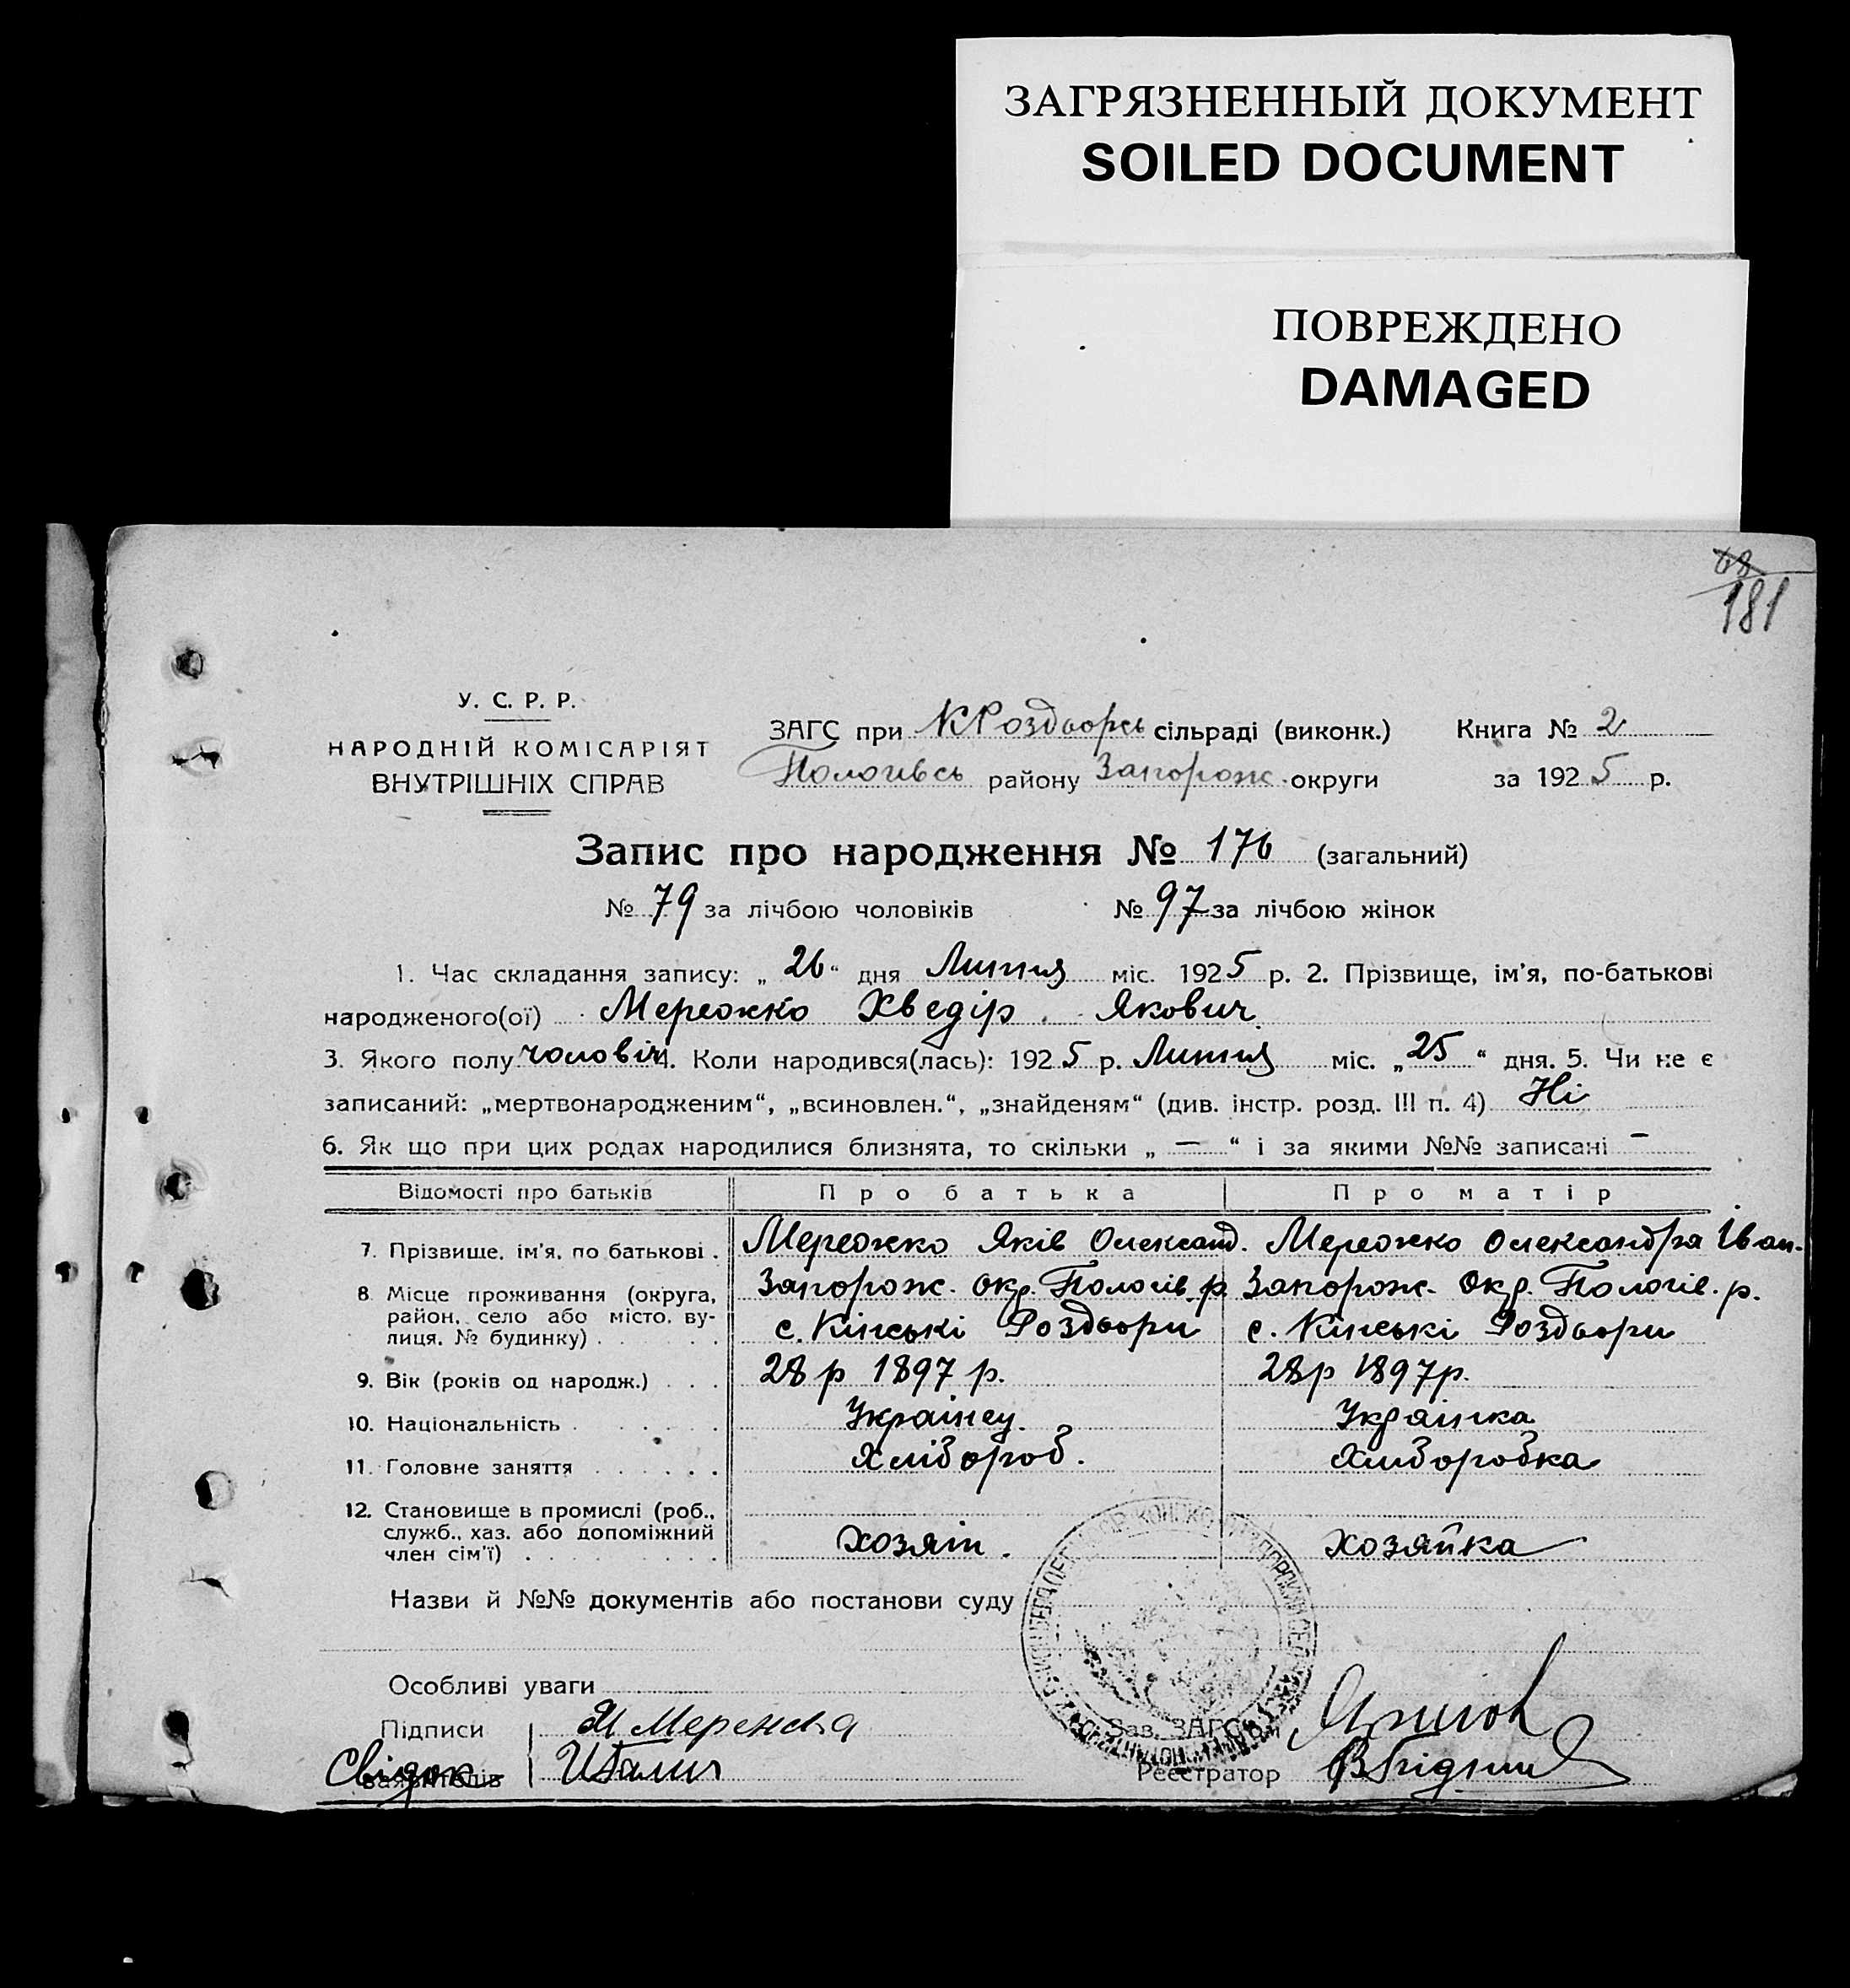 ЗАГРЯЗНЕННЫЙ ДОКУМЕНТ
SOILED DOCUMENT
ПОВРЕЖДЕНО
DAMAGED
68
181
У. С. Р. Р.
НАРОДНІЙ КОМІСАРІЯТ
ВНУТРІШНІХ СПРАВ
ЗАГС при К Роздорсь сільраді (виконк.) Книга № 2
Пологівсь району Запорож. округи за 1925 р.
Запис про народження № 176 (загальний)
№ 79 за лічбою чоловіків № 97 за лічбою жінок
1. Час складання запису: „ 26 “ дня Липня міс. 1925 р. 2. Прізвище, ім'я, по-батькові
народженого(ої) Мережко Хведір Якович
3. Якого полу чоловіч 4. Коли народився(лась): 1925 р. Липня міс. „ 25 “ дня. 5. Чи не є
записаний: „мертвонародженим“, „всиновлен.“, „знайденям“ (див. інстр. розд. III п. 4) Ні
6. Як що при цих родах народилися близнята, то скільки „ — “ і за якими №№ записані —
Відомості про батьків Про батька Про матір
7. Прізвище, ім'я, по батькові . Мережко Яків Олександ. Мережко Олександра Іван.
8. Місце проживання (округа, район, село або місто, вулиця, № будинку) . Запорож. окр. Пологів. р. Запорож. Окр. Пологів. р.
с. Кінські Роздори с. Кінські Роздори
9. Вік (років од народж.) . . . 28 р 1897 р. 28 р 1897 р.
10. Національність . Українец. Українка
11. Головне заняття . Хлібороб. Хліборобка
12. Становище в промислі (роб., служб., хаз. або допоміжний член сім'ї) . Хозяін. Хозяйка
Назви й №№ документів або постанови суду
Особливі уваги
Підписи Я Мережка
заявителів Свідок
Зав. ЗАГС'ом
Реєстратор